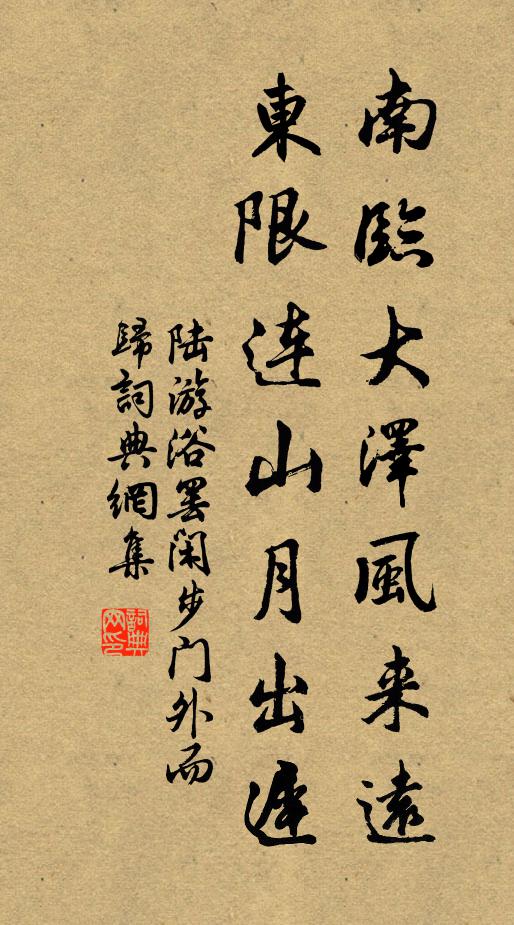 南臨大澤風来遠
東限連山月出遲
陆游浴罢闲步门外而
歸詞典網集
詞典网印